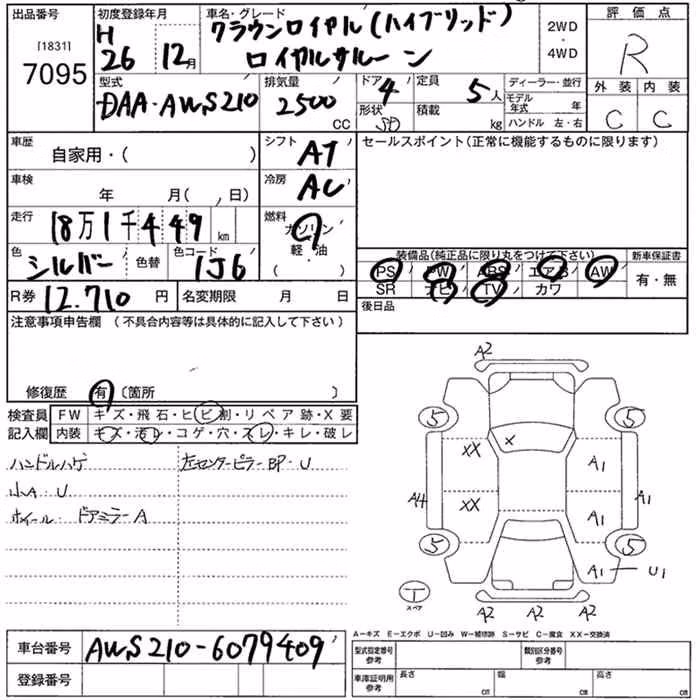 出品番号
[1831]
7095
初度登録年月
H
26 12月
車名・グレード
クラウンロイヤル(ハイブリッド)
ロイヤルサルーン
2WD
・
4WD
評価点
R
外装 内装
C C
型式
DAA-AWS210
排気量
2500
CC
ドア 4
形状 SD
定員 5人
積載 kg
ディーラー・並行
モデル年式 年
ハンドル 左・右
車歴
自家用・( )
シフト
AT
セールスポイント(正常に機能するものに限ります)
車検
年 月( , 日)
冷房
AC
走行
18万1千449 km
燃料
ガソリン
軽油
( )
色
シルバー
色替
色コード
1J6
装備品(純正品に限り丸をつけて下さい)
PS PW ABS エアB AW
SR ナビ TV カワ
新車保証書
有・無
R券 12.710 円
名変期限 月 日
後日品
注意事項申告欄(不具合内容等は具体的に記入して下さい)
修復歴 有 〔箇所 〕
検査員
記入欄
FW キズ・飛石・ヒビ割・リペア跡・X要
内装 キズ・汚レ・コゲ・穴・スレ・キレ・破レ
ハンドルハゲ 左センターピラーBP・U
小A・U
ホイール・ドアミラーA
A2
5 5
XX X A1
A4 XX A1 A1
5 5
A1 U1
T
スペア
A2 A2 A2
A-キズ E-エクボ U-凹み W-補修跡 S-サビ C-腐食 XX-交換済
車台番号 AWS210-6079409
登録番号
型式指定番号
参考
類別区分番号
参考
車庫証明用
参考
長さ cm
幅 cm
高さ cm